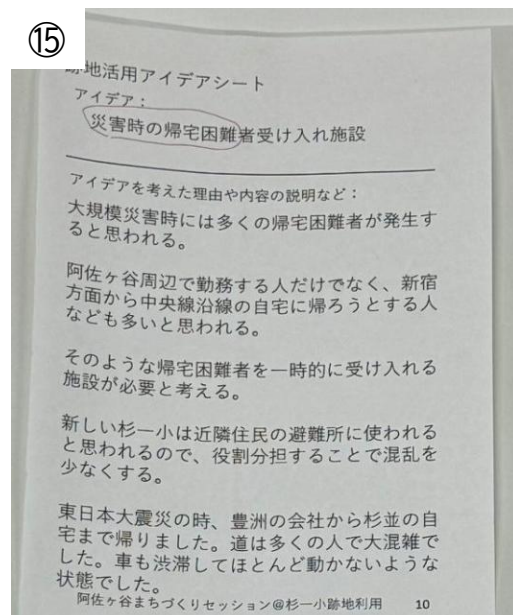 ⑮
跡地活用アイデアシート
アイデア：
災害時の帰宅困難者受け入れ施設
アイデアを考えた理由や内容の説明など：
大規模災害時には多くの帰宅困難者が発生す
ると思われる。
阿佐ヶ谷周辺で勤務する人だけでなく、新宿
方面から中央線沿線の自宅に帰ろうとする人
なども多いと思われる。
そのような帰宅困難者を一時的に受け入れる
施設が必要と考える。
新しい杉一小は近隣住民の避難所に使われる
と思われるので、役割分担することで混乱を
少なくする。
東日本大震災の時、豊洲の会社から杉並の自
宅まで帰りました。道は多くの人で大混雑で
した。車も渋滞してほとんど動かないような
状態でした。
阿佐ヶ谷まちづくりセッション@杉一小跡地利用 10